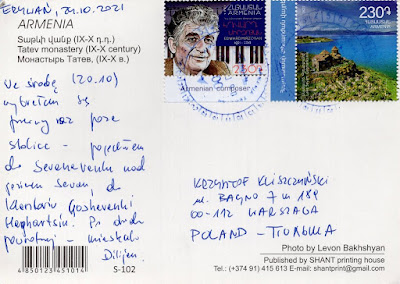 ERYWAŃ, 24.10.2021
ARMENIA
Տաթևի վանք (IX-X դ.դ.)
Tatev monastery (IX-X century)
Монастырь Татев, (IX-X в.)
We środę (20.10)
wybrałem się
pierwszy raz poza
stolicę - pojechałem
do Sevanavank nad
jezioro Sevan, do
klasztoru Goshavank i
Haghartsin. Po drodze
powrotnej - miasteczko
Dilijan.
4850123451014
S-102
ՀԱՅԱՍՏԱՆ
ARMENIA
220
Armenian composer
230
ՀԱՅԱՍՏԱՆ
ARMENIA
KRZYSZTOF KLISZCZYŃSKI
ul. BAGNO 7 m 189
00-112 WARSZAWA
POLAND -
Photo by Levon Bakhshyan
Published by SHANT printing house
Tel.: (+374 91) 415 613 E-mail: shantprint@gmail.com